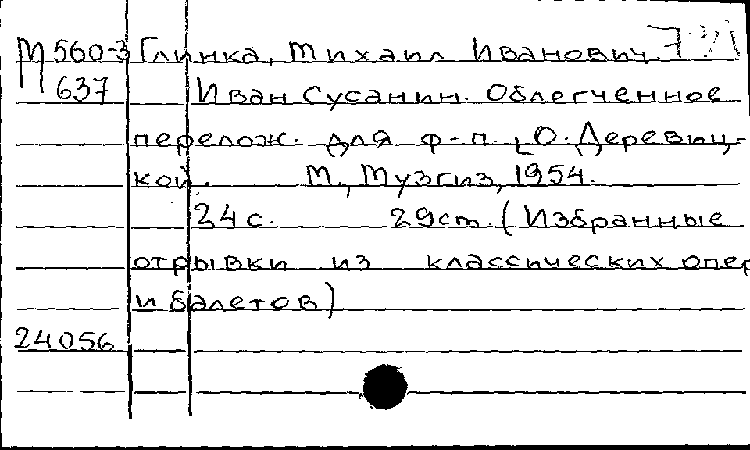 М560-3 Глинка, Михаил Иванович
637 Иван Сусанин. Облегченное
перелож. для ф-п. О. Деревиц-
кой. М., Музгиз, 1954.
24 с. 29 cm. (Избранные
отрывки из классических опер
и балетов)
24056